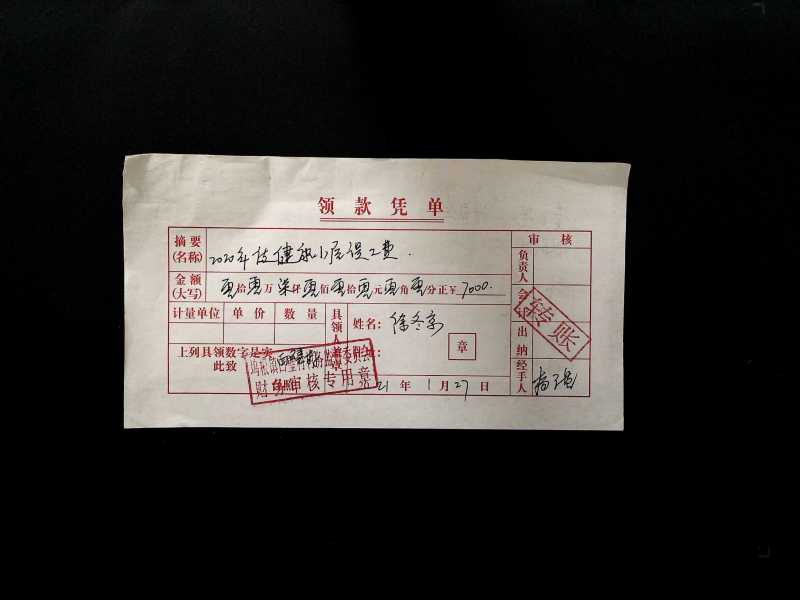 领款凭单
摘要(名称) 2020年 健 小 误工费.
金额(大写) 零拾零万柒仟零佰零拾零元零角零分正至 7000.
计量单位 单价 数量 具领人 姓名: 徐冬京
盖章 章
上列具领数字是实
此致
村务监督委员会
财务审核专用章
21年1月27日
审核
负责人
会计
出纳
经手人 杨
转账